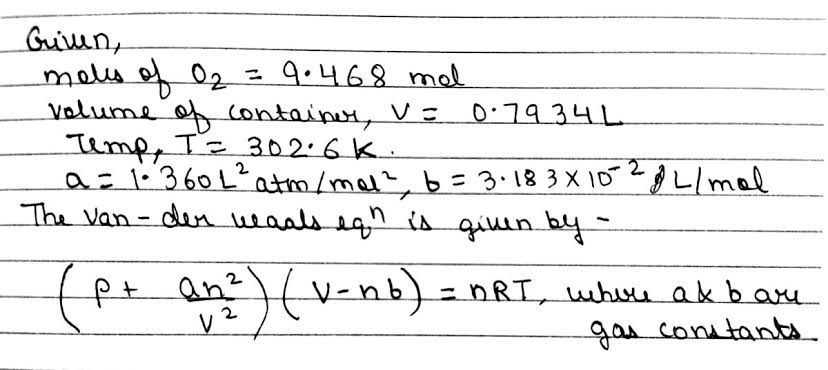 Given,
moles of O2 = 9.468 mol
volume of container, V = 0.7934L
Temp, T = 302.6 K.
a = 1.360 L² atm/mol², b = 3.183 × 10⁻² L/mol
The van-der waals eqⁿ is given by -
(P + an²/V²) (V - nb) = nRT, where a & b are
gas constants